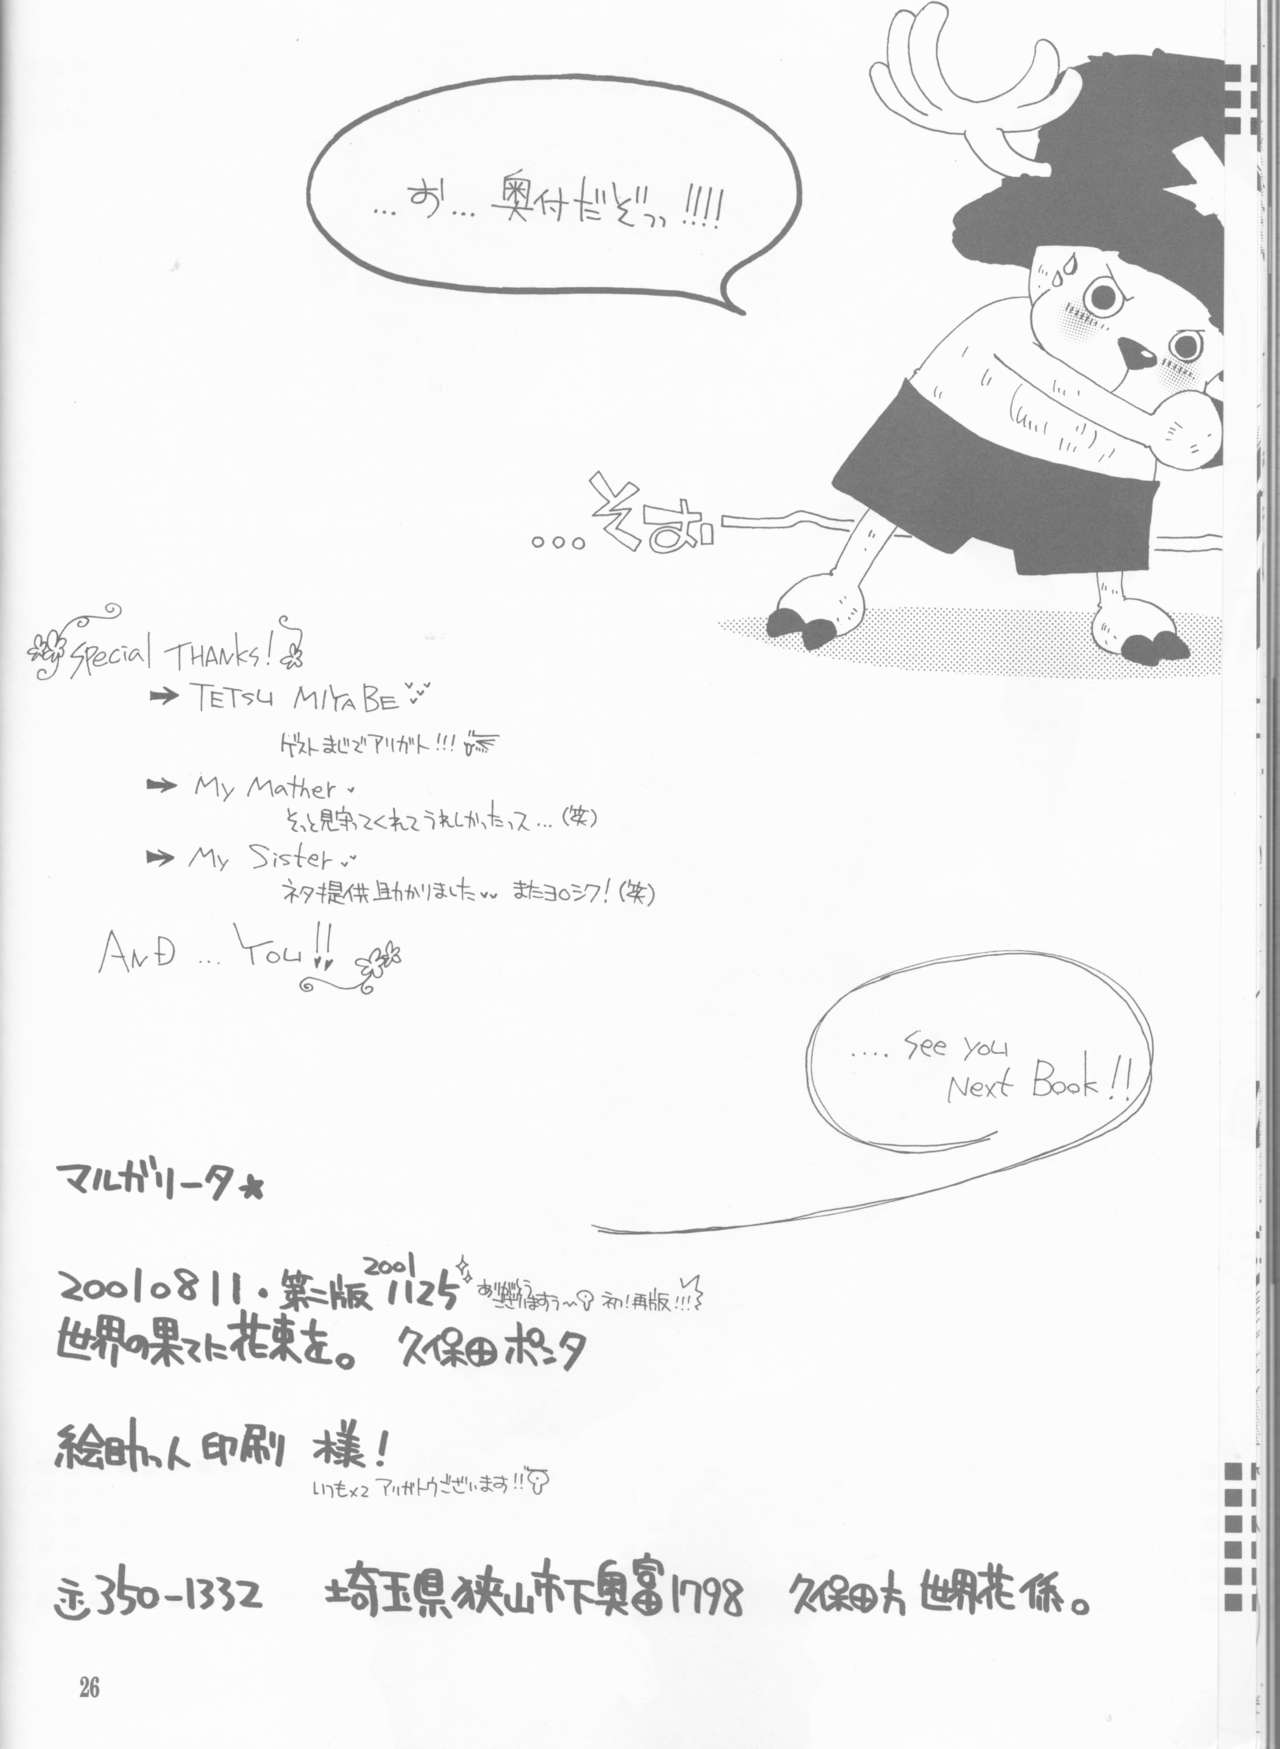 …お…奥付だぞっっ!!!!
…そお
Special THANKS!
➡ TETSU MIYABE
ゲストまじでアリガト!!!
➡ My Mather
そっと見守ってくれてうれしかったっス…(笑)
➡ My Sister
ネタ提供助かりました またヨロシク!(笑)
AND … YOU!!
.... See you
Next Book!!
マルガリータ☆
20010811・第二版 2001 1125 ありがとうございますぅ〜 初!再版!!!
世界の果てに花束を。 久保田ポンタ
絵助っ人印刷 様!
いつも×2 アリガトウございます!!
〒350-1332 埼玉県狭山市下奥富1798 久保田方 世界花係。
26